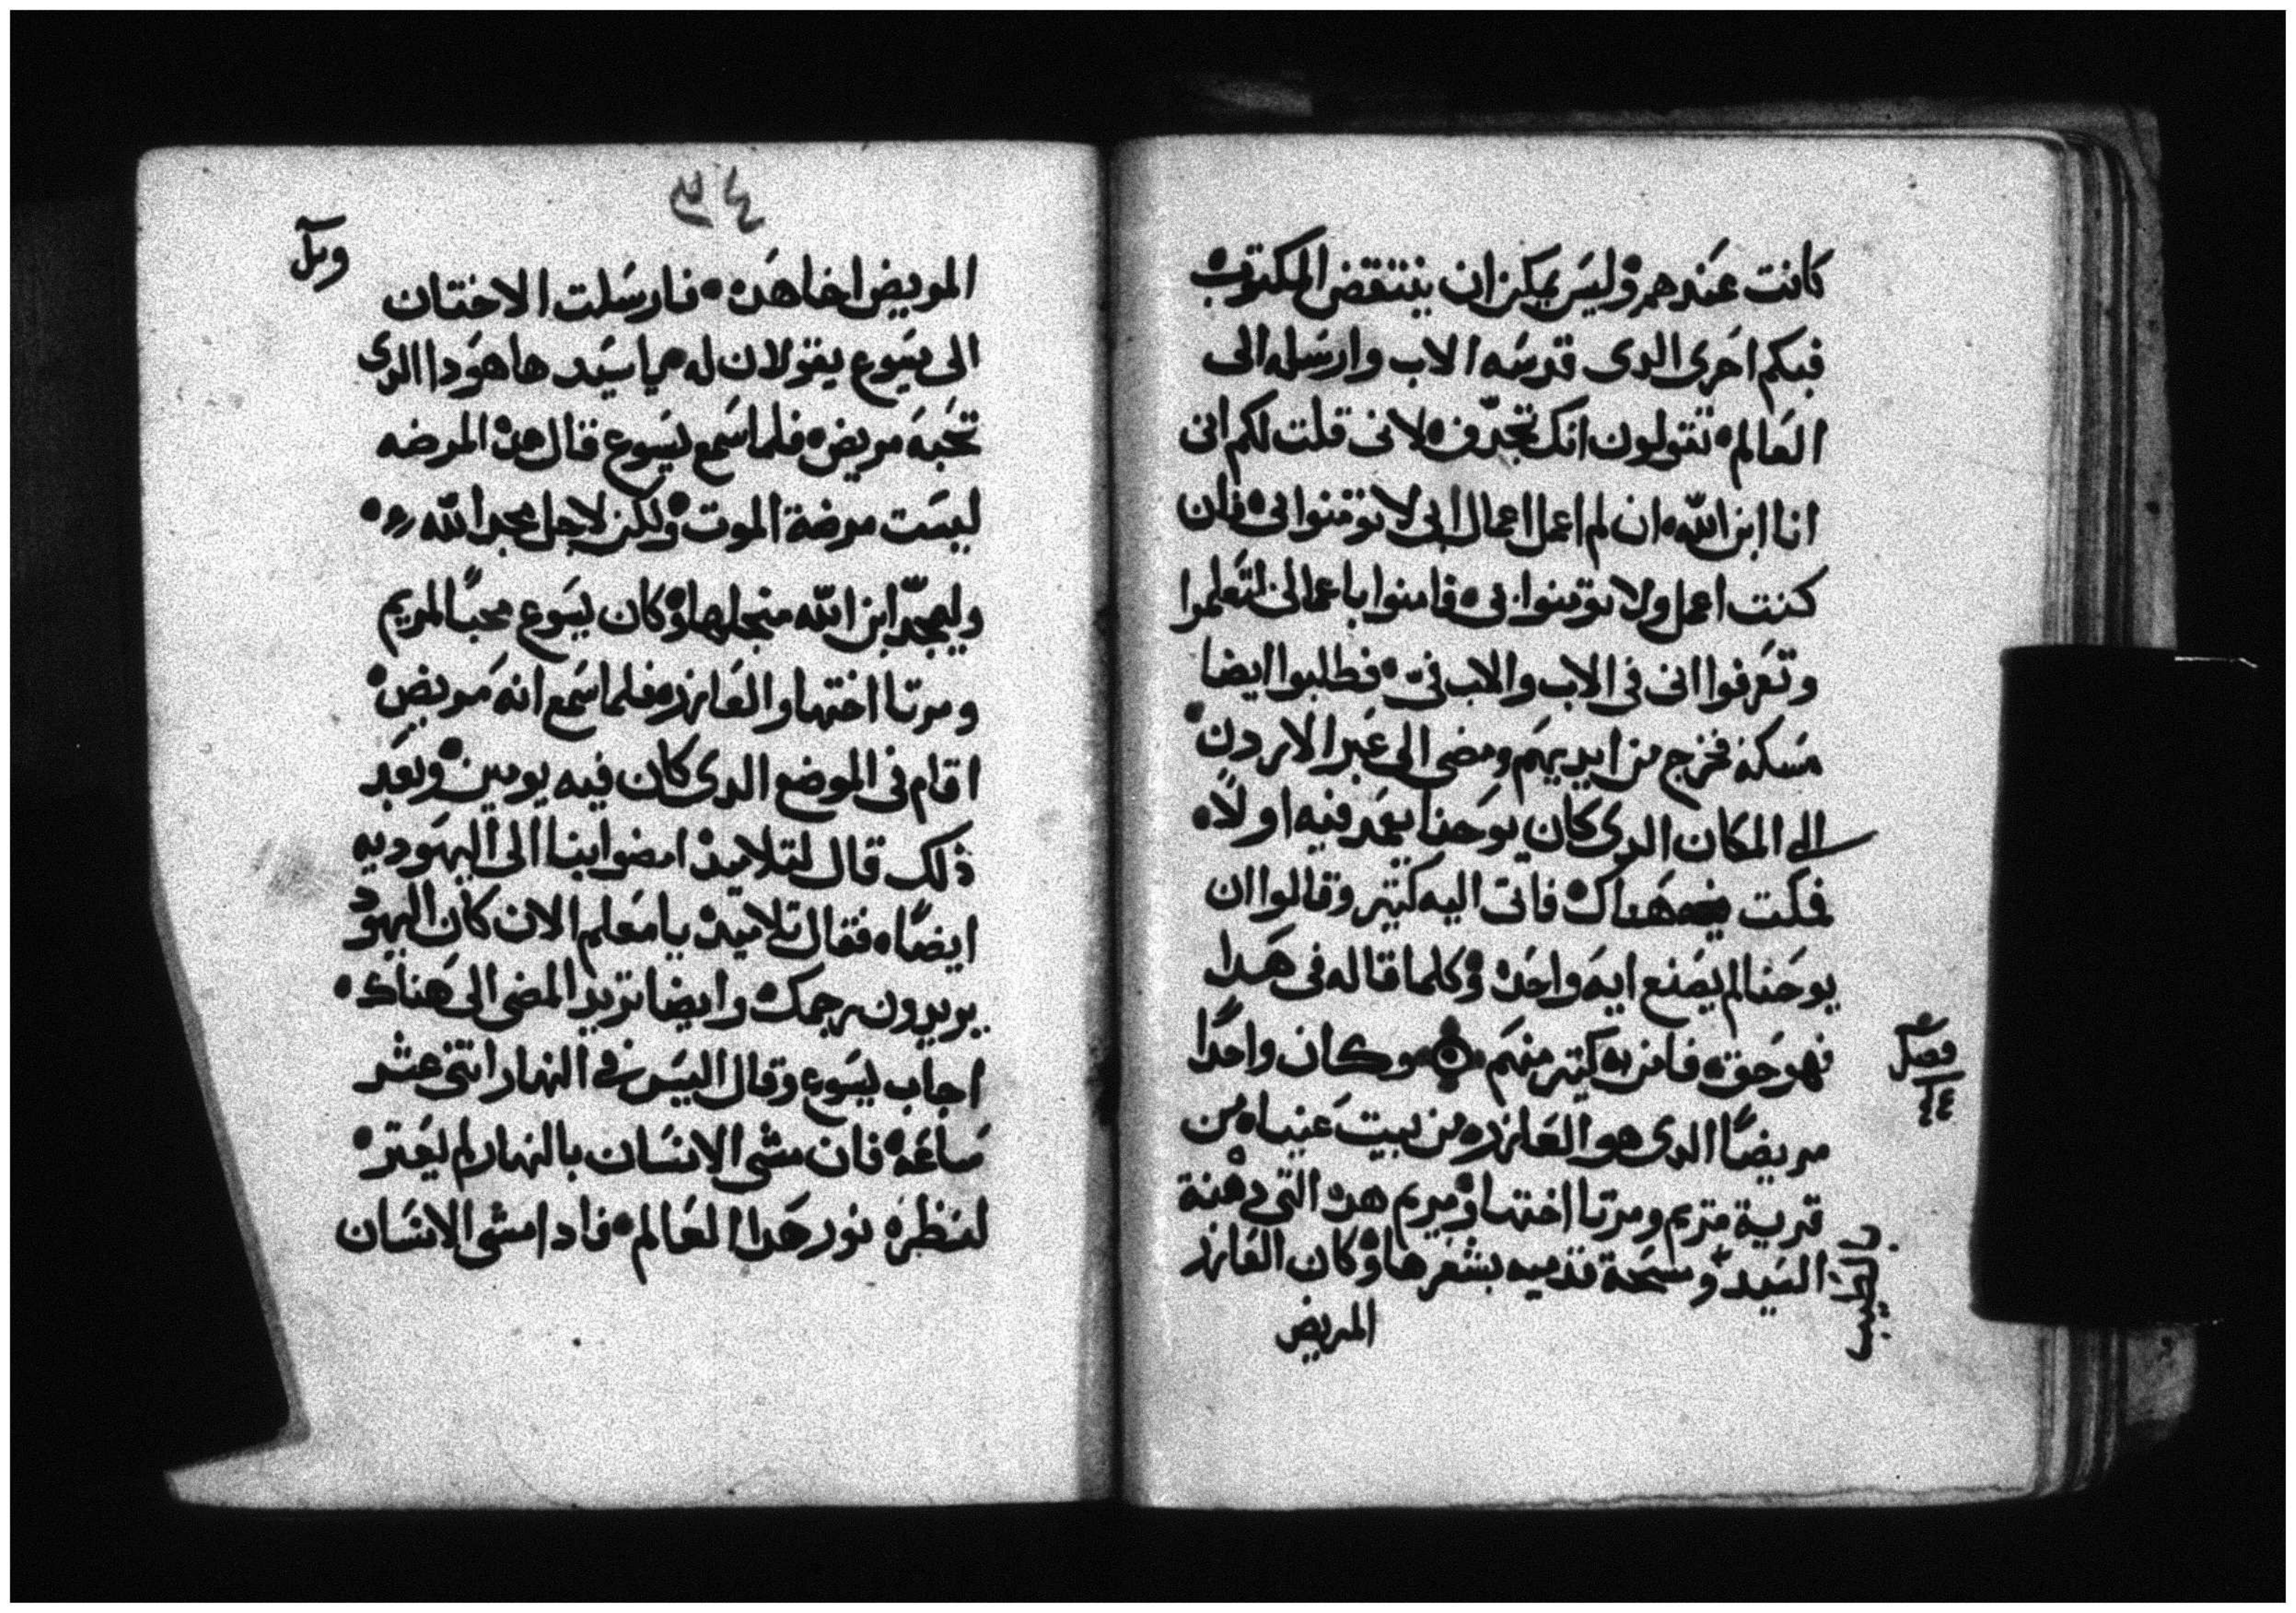 كانت عندهم وليس يمكن ان ينتقض المكتوب
فبكم احرى الدى قدسه الاب وارسله الى
العالم تقولون انك تجدف لانى قلت لكم انى
انا ابن الله ان لم اعمل اعمال ابى لا تومنوا بى فان
كنت اعمل ولا تومنوا بى فامنوا باعمالى لتعلموا
وتعرفوا انى فى الاب والاب فىّ فطلبوا ايضا
مسكه فخرج من ايديهم ومضى الى عبر الاردن
الى المكان الدى كان يوحنا يعمد فيه اولاً
فمكت هناك فاتى اليه كتير وقالوا ان
يوحنا لم يصنع ايه واحده وكلما قاله فى هدا
فهو حق فامن به كتير منهم وكان واحدًا
مريضًا الدى هو العازر من بيت عنيا من
قرية مريم ومرتا اختها ومريم هده التى دهنة
السيد ومسحة قدميه بشعرها وكان العازر
بالطيب
المريض
فصل
٤٤
المريض اخا هده فارسلت الاختان
الى يسوع يقولان له يا سيد ها هودا الدى
تحبه مريض فلما سمع يسوع قال هده المرضه
ليست مرضة الموت ولكن لاجل مجد الله
وليمجد ابن الله منجلها وكان يسوع محبًا لمريم
ومرتا اختها والعازر فلما سمع انه مريض
اقام فى الموضع الدى كان فيه يومين وبعد
ذلك قال لتلاميده امضوا بنا الى اليهوديه
ايضًا فقال تلاميده يا معلم الان كان اليهود
يريدون رجمك وايضا تريد المضى الى هناك
اجاب يسوع وقال اليس فى النهار اتنى عشر
ساعه فان مشى الانسان بالنهار لم يعتر
لنظره نور هدا العالم فادا مشى الانسان